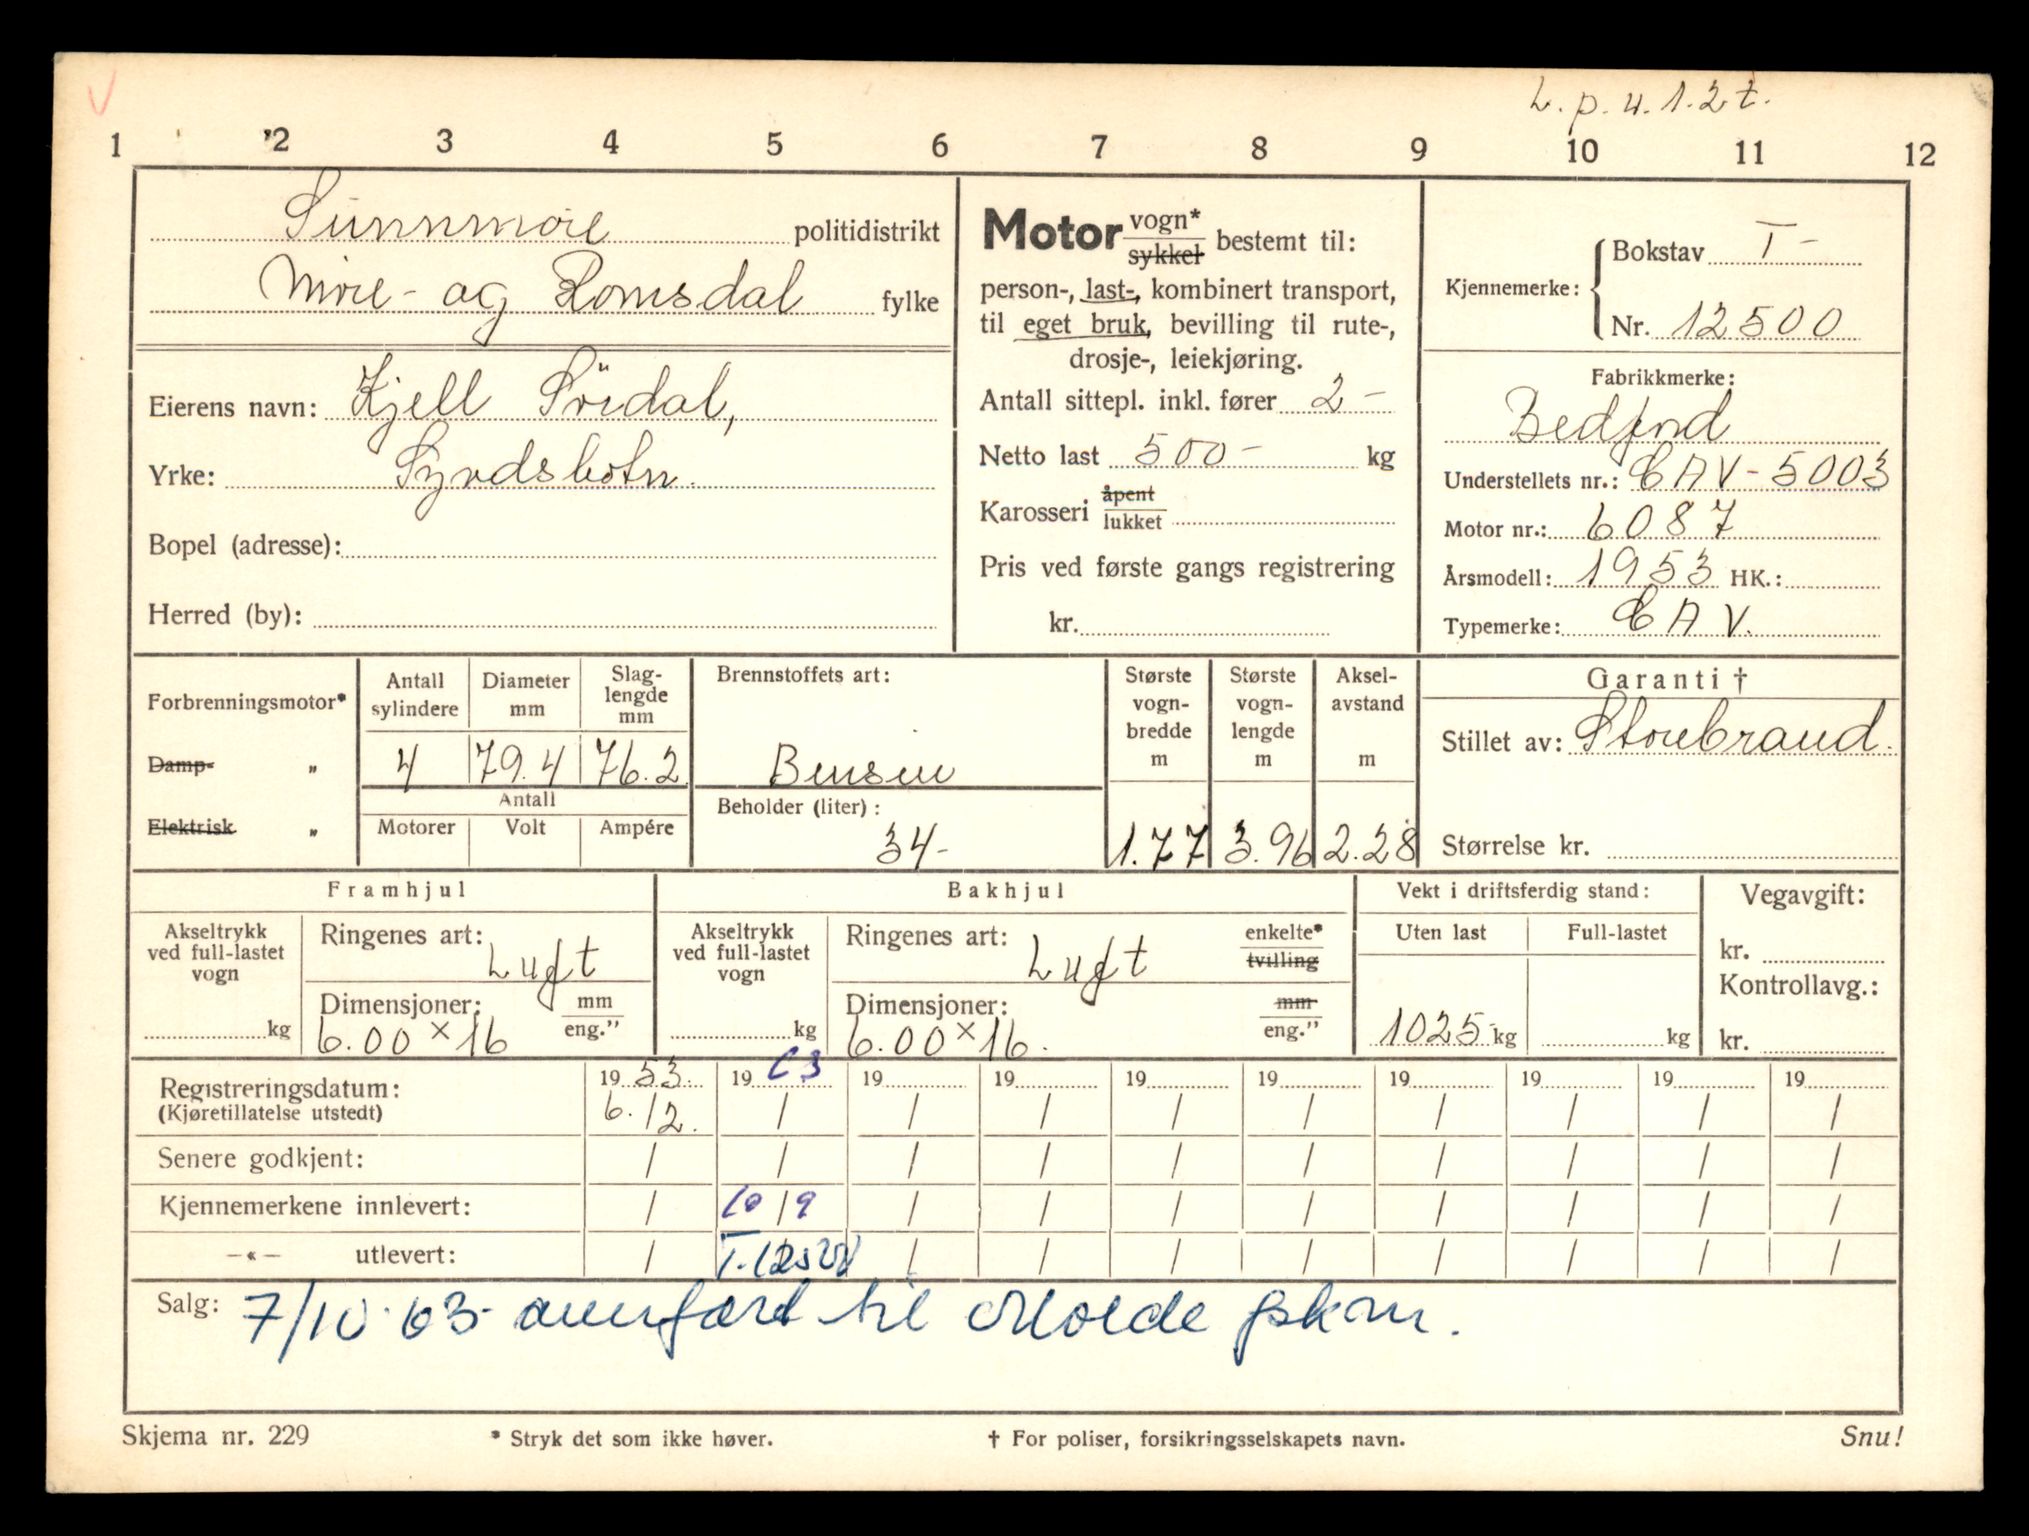 V
L.p.u.1.2t.
1 2 3 4 5 6 7 8 9 10 11 12
Sunnmøre politidistrikt
Møre- og Romsdal fylke
Eierens navn: Kjell Sördal,
Yrke: Syvdsbotn.
Bopel (adresse):
Herred (by):
Motor vogn* sykkel bestemt til:
person-, last-, kombinert transport,
til eget bruk, bevilling til rute-,
drosje-, leiekjøring.
Antall sittepl. inkl. fører 2-
Netto last 500- kg
Karosseri åpent lukket
Pris ved første gangs registrering
kr.
Kjennemerke: Bokstav T-
Nr. 12500
Fabrikkmerke:
Bedford
Understellets nr.: EAV-5003
Motor nr.: 6087
Årsmodell: 1953 HK.:
Typemerke: EAV.
Forbrenningsmotor*
Damp- „
Elektrisk „
Antall sylindere
Diameter mm
Slag-lengde mm
4 79.4 76.2
Antall
Motorer Volt Ampére
Brennstoffets art:
Bensin
Beholder (liter):
34-
Største vogn-bredde m
1.77
Største vogn-lengde m
3.96
Aksel-avstand m
2.28
Garanti †
Stillet av: Storebrand.
Størrelse kr.
Framhjul
Akseltrykk ved full-lastet vogn
kg
Ringenes art: Luft
Dimensjoner: mm eng.”
6.00 x 16
Bakhjul
Akseltrykk ved full-lastet vogn
kg
Ringenes art: Luft enkelte* tvilling
Dimensjoner: mm eng.”
6.00 x 16.
Vekt i driftsferdig stand:
Uten last Full-lastet
1025 kg kg
Vegavgift:
kr.
Kontrollavg.:
kr.
Registreringsdatum: 19 53 19 63 19 19 19 19 19 19 19 19
(Kjøretillatelse utstedt) 6./12. / / / / / / / / /
Senere godkjent: / / / / / / / / / /
Kjennemerkene innlevert: / 10/9 / / / / / / / /
—«— utlevert: / / / / / / / / /
Salg: 7/10-63- overført til Molde pskm.
Skjema nr. 229
* Stryk det som ikke høver.
† For poliser, forsikringsselskapets navn.
Snu!